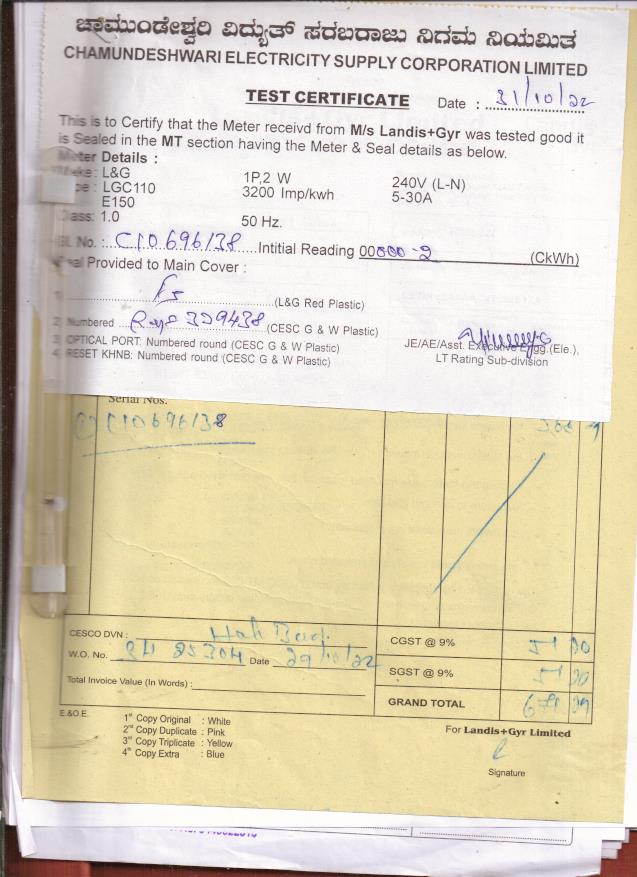 ಚಾಮುಂಡೇಶ್ವರಿ ವಿದ್ಯುತ್ ಸರಬರಾಜು ನಿಗಮ ನಿಯಮಿತ
CHAMUNDESHWARI ELECTRICITY SUPPLY CORPORATION LIMITED
TEST CERTIFICATE Date : 31/10/22
This is to Certify that the Meter receivd from M/s Landis+Gyr was tested good it
is Sealed in the MT section having the Meter & Seal details as below.
Meter Details :
Make : L&G 1P,2 W 240V (L-N)
: LGC110 3200 Imp/kwh 5-30A
E150
Class: 1.0 50 Hz.
SL No. : C10696138 Intitial Reading 00000-2 (CkWh)
Seal Provided to Main Cover :
1) (L&G Red Plastic)
2) Numbered 329438 (CESC G & W Plastic)
3) OPTICAL PORT: Numbered round (CESC G & W Plastic)
4) RESET KHNB: Numbered round (CESC G & W Plastic)
JE/AE/Asst. Executive Engg.(Ele.),
LT Rating Sub-division
Serial Nos.
C10696138
CESCO DVN :
W.O. No. 25304 Date 29/10/22
Total Invoice Value (In Words) :
CGST @ 9%
SGST @ 9%
GRAND TOTAL
E.&O.E.
1st Copy Original : White
2nd Copy Duplicate : Pink
3rd Copy Triplicate : Yellow
4th Copy Extra : Blue
For Landis+Gyr Limited
Signature